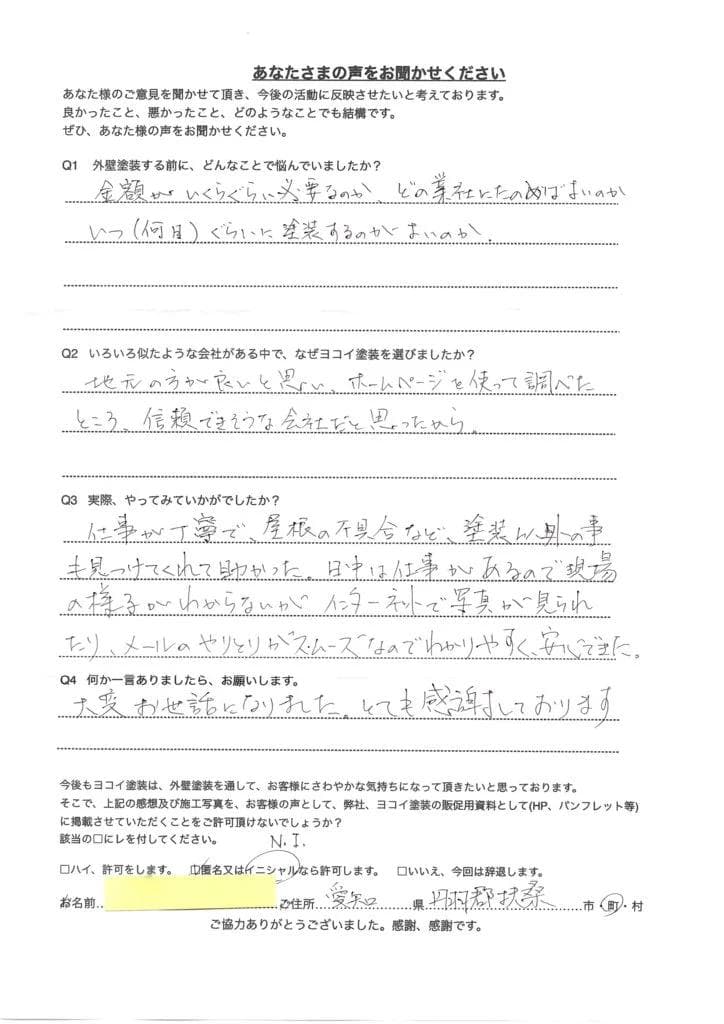 あなたさまの声をお聞かせください
あなた様のご意見を聞かせて頂き、今後の活動に反映させたいと考えております。
良かったこと、悪かったこと、どのようなことでも結構です。
ぜひ、あなた様の声をお聞かせください。
Q1 外壁塗装する前に、どんなことで悩んでいましたか？
金額がいくらぐらい必要なのか、どの業社にたのめばよいのか
いつ（何日）ぐらいに塗装するのがよいのか。
Q2 いろいろ似たような会社がある中で、なぜヨコイ塗装を選びましたか？
地元の方が良いと思い、ホームページを使って調べた
ところ、信頼できそうな会社だと思ったから。
Q3 実際、やってみていかがでしたか？
仕事が丁寧で、屋根の不具合など、塗装以外の事
も見つけてくれて助かった。日中は仕事があるので現場
の様子がわからないが インターネットで写真が見られ
たり、メールのやりとりがスムーズなのでわかりやすく、安心できた。
Q4 何か一言ありましたら、お願いします。
大変お世話になりました。とても感謝しております
今後もヨコイ塗装は、外壁塗装を通して、お客様にさわやかな気持ちになって頂きたいと思っております。
そこで、上記の感想及び施工写真を、お客様の声として、弊社、ヨコイ塗装の販促用資料として(HP、パンフレット等)
に掲載させていただくことをご許可頂けないでしょうか？
該当の□にレを付してください。 N.I.
□ハイ、許可をします。 □匿名又はイニシャルなら許可します。 □いいえ、今回は辞退します。
お名前 ご住所 愛知 県 丹羽郡扶桑 市・町・村
ご協力ありがとうございました。感謝、感謝です。